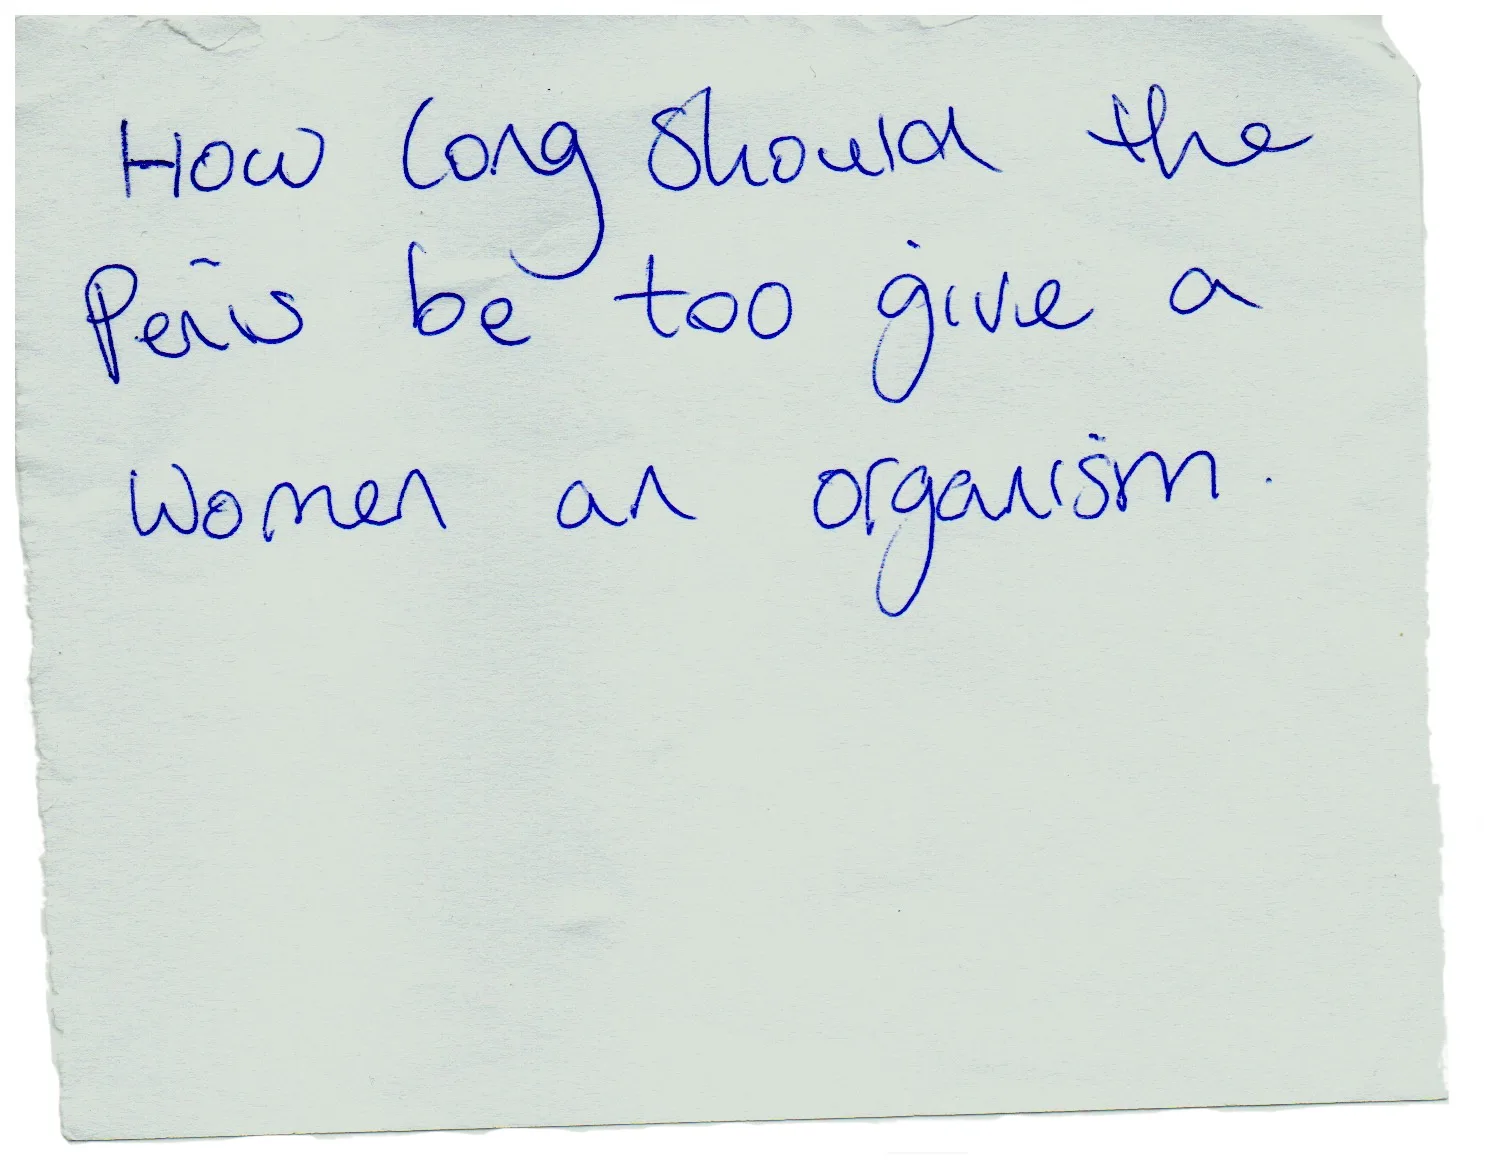 How long should the
Penis be too give a
women an organism.